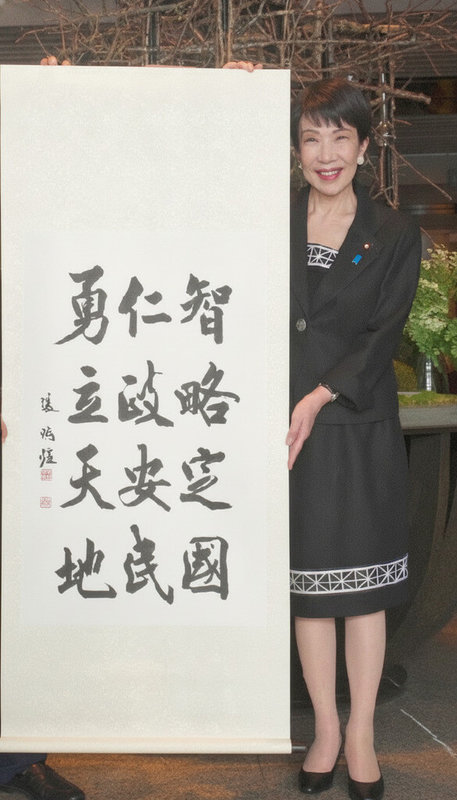 智略定國
仁政安民
勇立天地